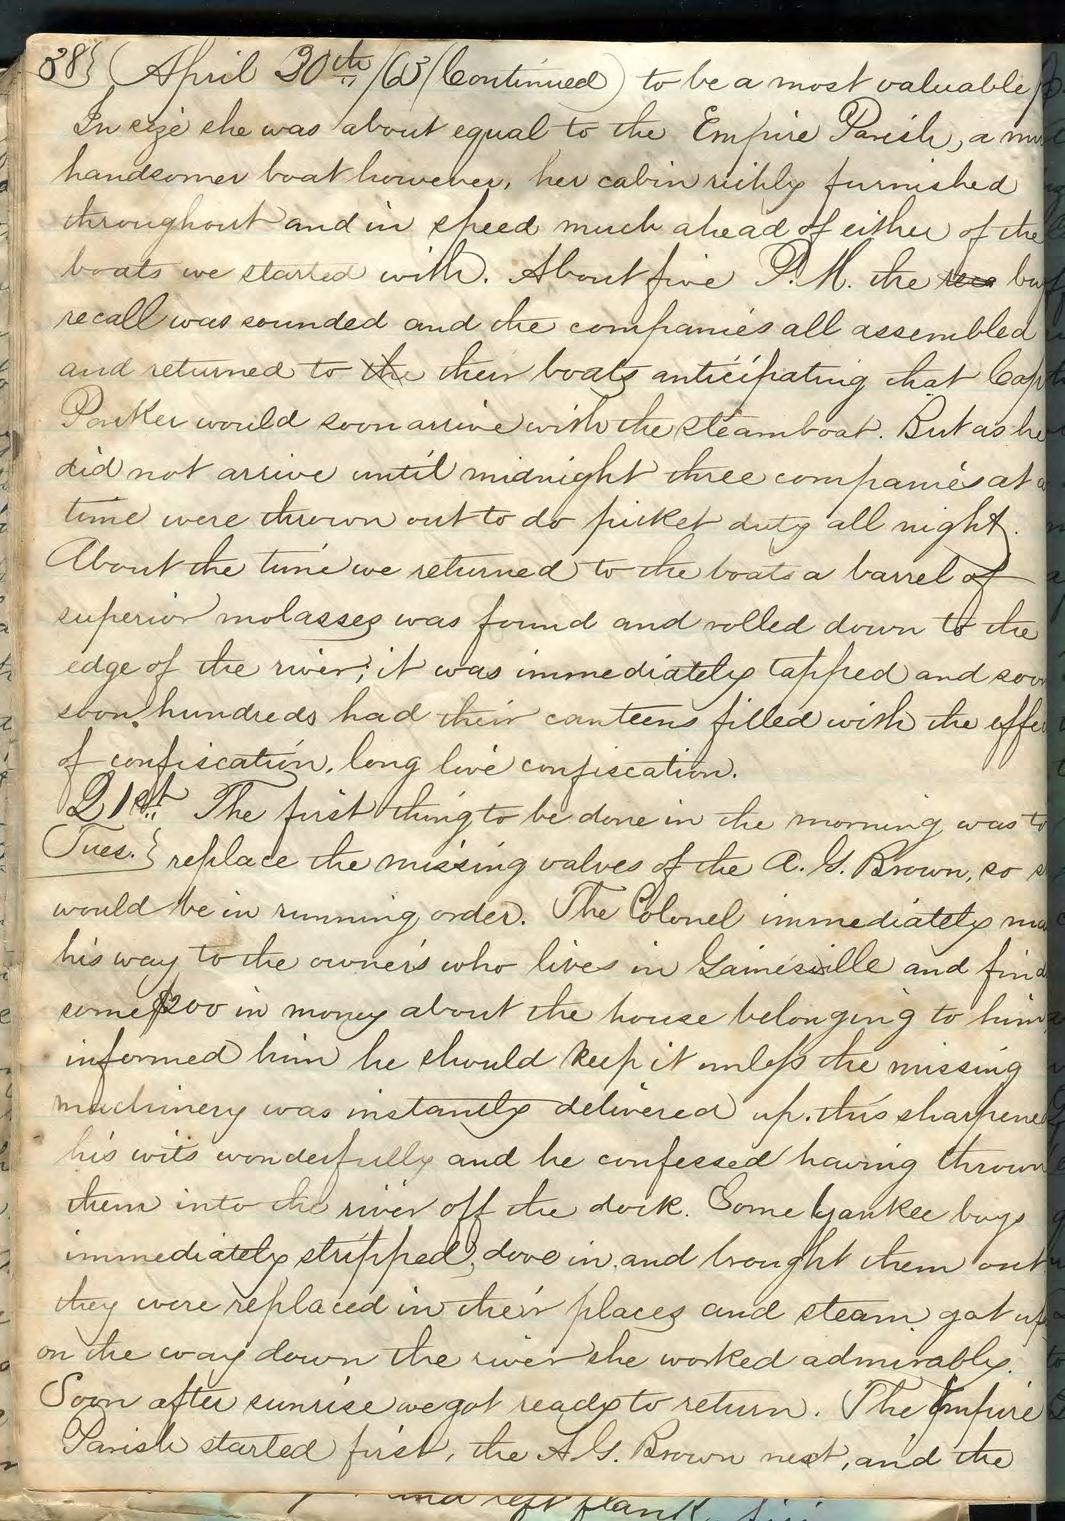 38} (April 20th /63 (Continued) to be a most valuable
In size she was about equal to the Empire Parish, a
handsomer boat however, her cabin richly furnished
throughout and in speed much ahead of either of the
boats we started with. About five P.M. the
recall was sounded and the companies all assembled
and returned to the their boats anticipating that Capt
Parker would soon arrive with the steamboat. But as he
did not arrive until midnight three companies at a
time were thrown out to do picket duty all night.
About the time we returned to the boats a barrel of
superior molasses was found and rolled down to the
edge of the river; it was immediately tapped and soon
soon, hundreds had their canteens filled with the
of confiscation, long live confiscation.
21st. The first thing to be done in the morning was to
Tues.} replace the missing valves of the A. G. Brown, so
would be in running order. The Colonel immediately
his way to the owners who lives in Gainesville and
some $200 in money about the house belonging to him
informed him he should keep it unless the missing
machinery was instantly delivered up. this sharpened
his wits wonderfully and he confessed having thrown
them into the river off the dock. Some Yankee boys
immediately stripped, dove in, and brought them out
they were replaced in their places and steam got up
on the way down the river she worked admirably.
Soon after sunrise we got ready to return. The Empire
Parish started first, the A.G. Brown next, and the
and left flank